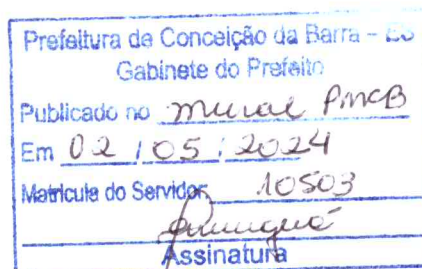 Prefeitura de Conceição da Barra - ES
Gabinete do Prefeito
Publicado no mural PMCB
Em 02 / 05 / 2024
Matricula do Servidor 10503
Assinatura